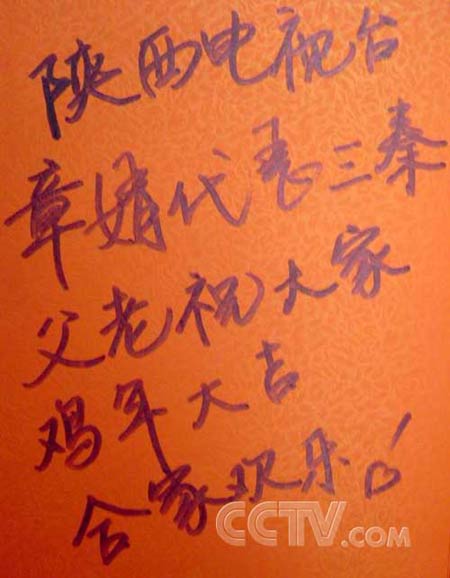 陕西电视台
章婧代表三秦
父老祝大家
鸡年大吉
合家欢乐!
CCTV.COM